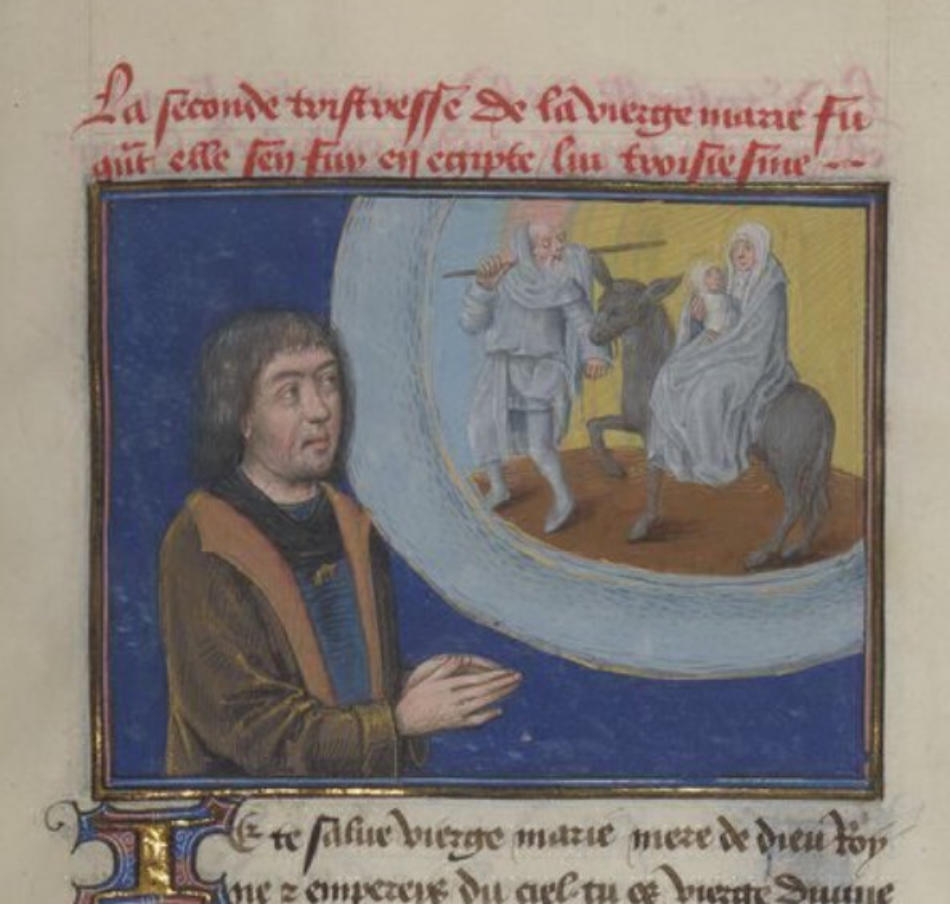 La seconde tristresse de la vierge marie fu
qũt elle sen fuy en egipte / lui troisiesme
Ie te salue vierge marie mere de dieu Roy
ne zempereis du ciel tu es vierge